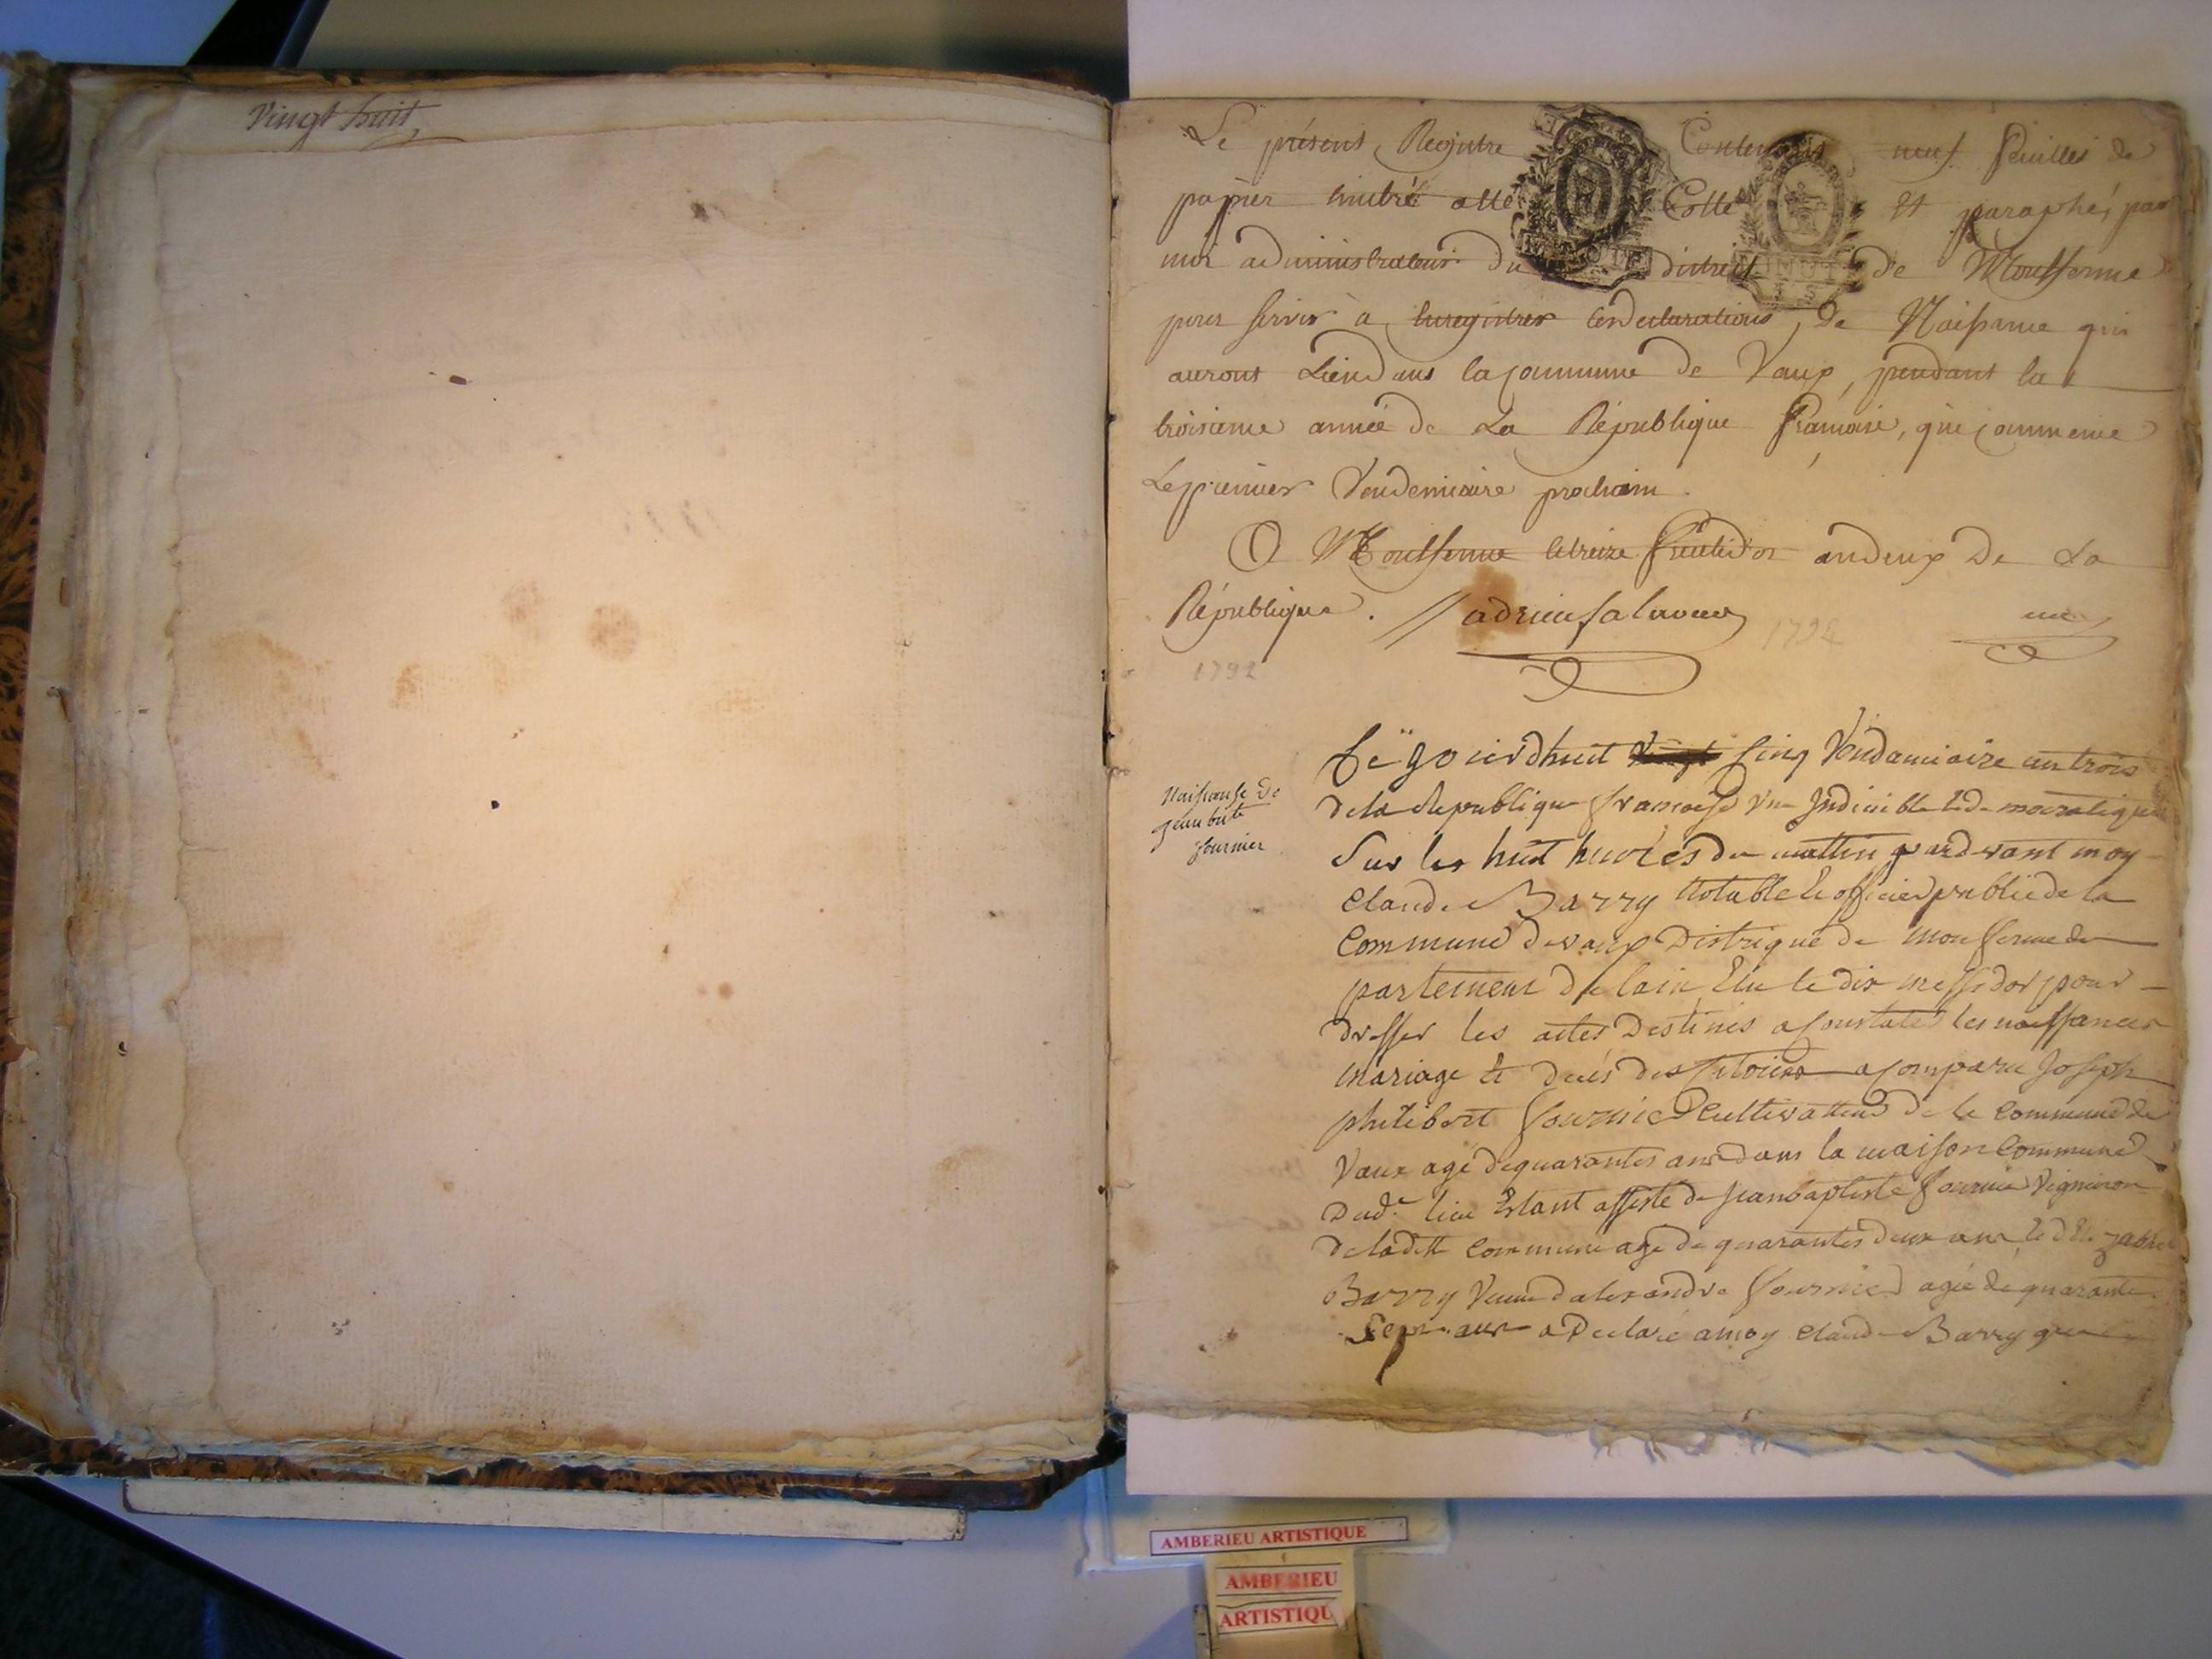 Vingt huit
Le présent Registre Contenant neuf feuilles de
papier timbré a été Cotté et paraphé, par
moi administrateur du district de Montferme
pour servir à Enregistrer les declarations, de Naissance qui
auront Lieu dans la Commune de Vaux, pendant la
troisieme année de La République francaise, qui commence
Le premier Vendemiaire prochain.
A Montferme le treize fructidor an deux De La
République. // adrien
un
1792
1794
Cejourdhuit vingt Cinq Vendamiaire an trois
dela Republique francoise vne Indiuisible et democratique
Sur les huit heures du mattin pardevant moy
Claude Barry Notable et officier public de la
Commune devaux Distrique de monfermede
partement de lain Elu le dix messidor pour
dresser les actes Destinés a Constater les naissances
mariage et decés des Citoiens a comparu Joseph
philibert fournier Cultivatteur de la Commune de
Vaux agé de quarantes ans dans la maison Commune
dud.t lieu Estant assisté de jean baptiste fournier Vigneron
de laditte Commune agé de quarantes deux ans et de
Barry Veuve dalexandre fournier agée de quarante
Sept ans a Declaré a moy Claude Barry que
Naissance de
jean bte
fournier
AMBERIEU ARTISTIQUE
AMBERIEU
ARTISTIQU